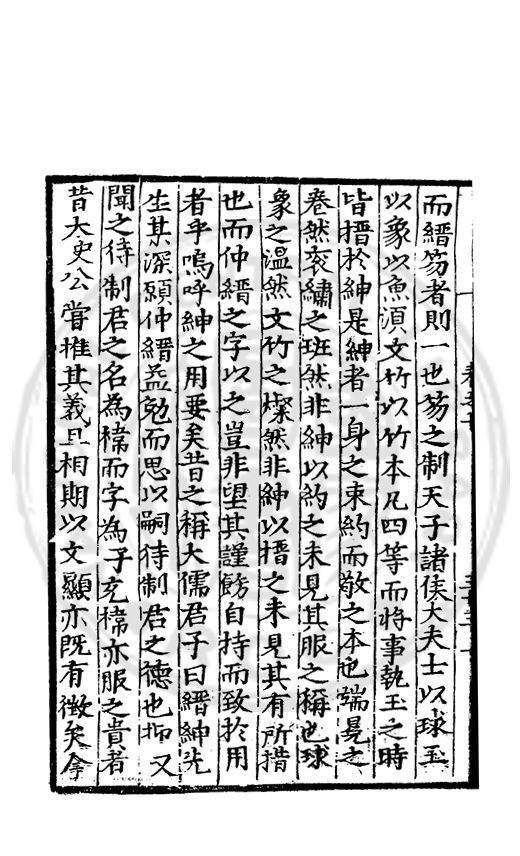 而縉笏者則一也笏之制天子諸侯大夫士以球玉
以象以魚須文竹以竹本凡四等而將事執玉之時
皆搢於紳是紳者一身之束約而敬之本也端冕之
卷然衮繡之班然非紳以約之未見其服之稱也球
象之温然文竹之燦然非紳以搢之未見其有所措
也而仲縉之字以之豈非望其謹飭自持而致於用
者乎嗚呼紳之用要矣昔之稱大儒君子曰縉紳先
生某深願仲縉益勉而思以嗣待制君之德也抑又
聞之待制君之名為褘而字為子充褘亦服之貴者
昔大史公嘗推其義且相期以文顯亦既有徵矣